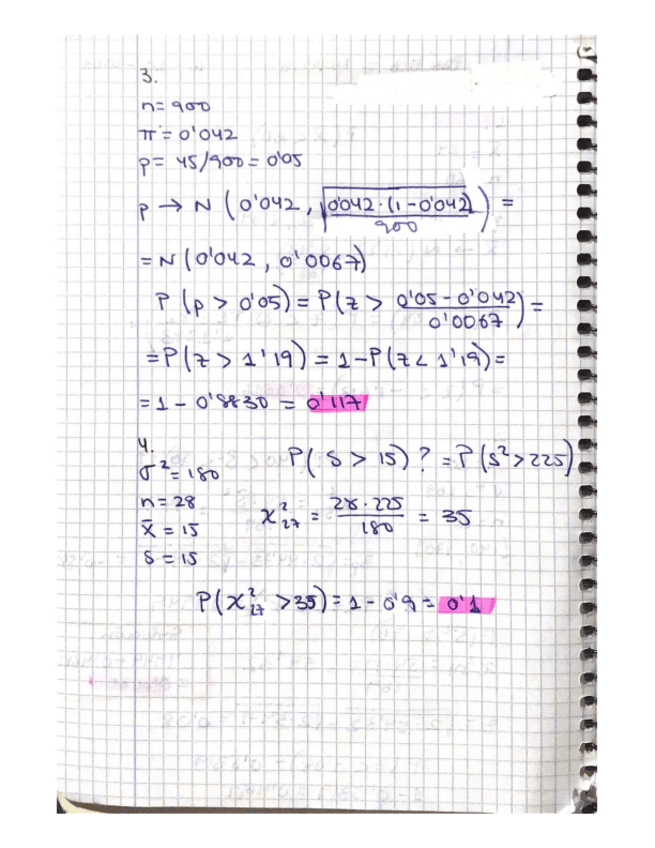 3.
n=900
π=0'042
p= 45/900=0'05
p → N (0'042, √(0'042·(1-0'042)/900)) =
= N (0'042, 0'0067)
P (p > 0'05) = P(z > (0'05-0'042)/0'0067) =
=P(z > 1'19) = 1-P(z < 1'19)=
=1-0'8830 = 0'117
4.
σ²=180
P( S > 15)? =P(s²>225)
n=28
x̄=15
χ²₂₇ = 28·225/180 = 35
S=15
P(χ²₂₇ >35)=1-0'9= 0'1